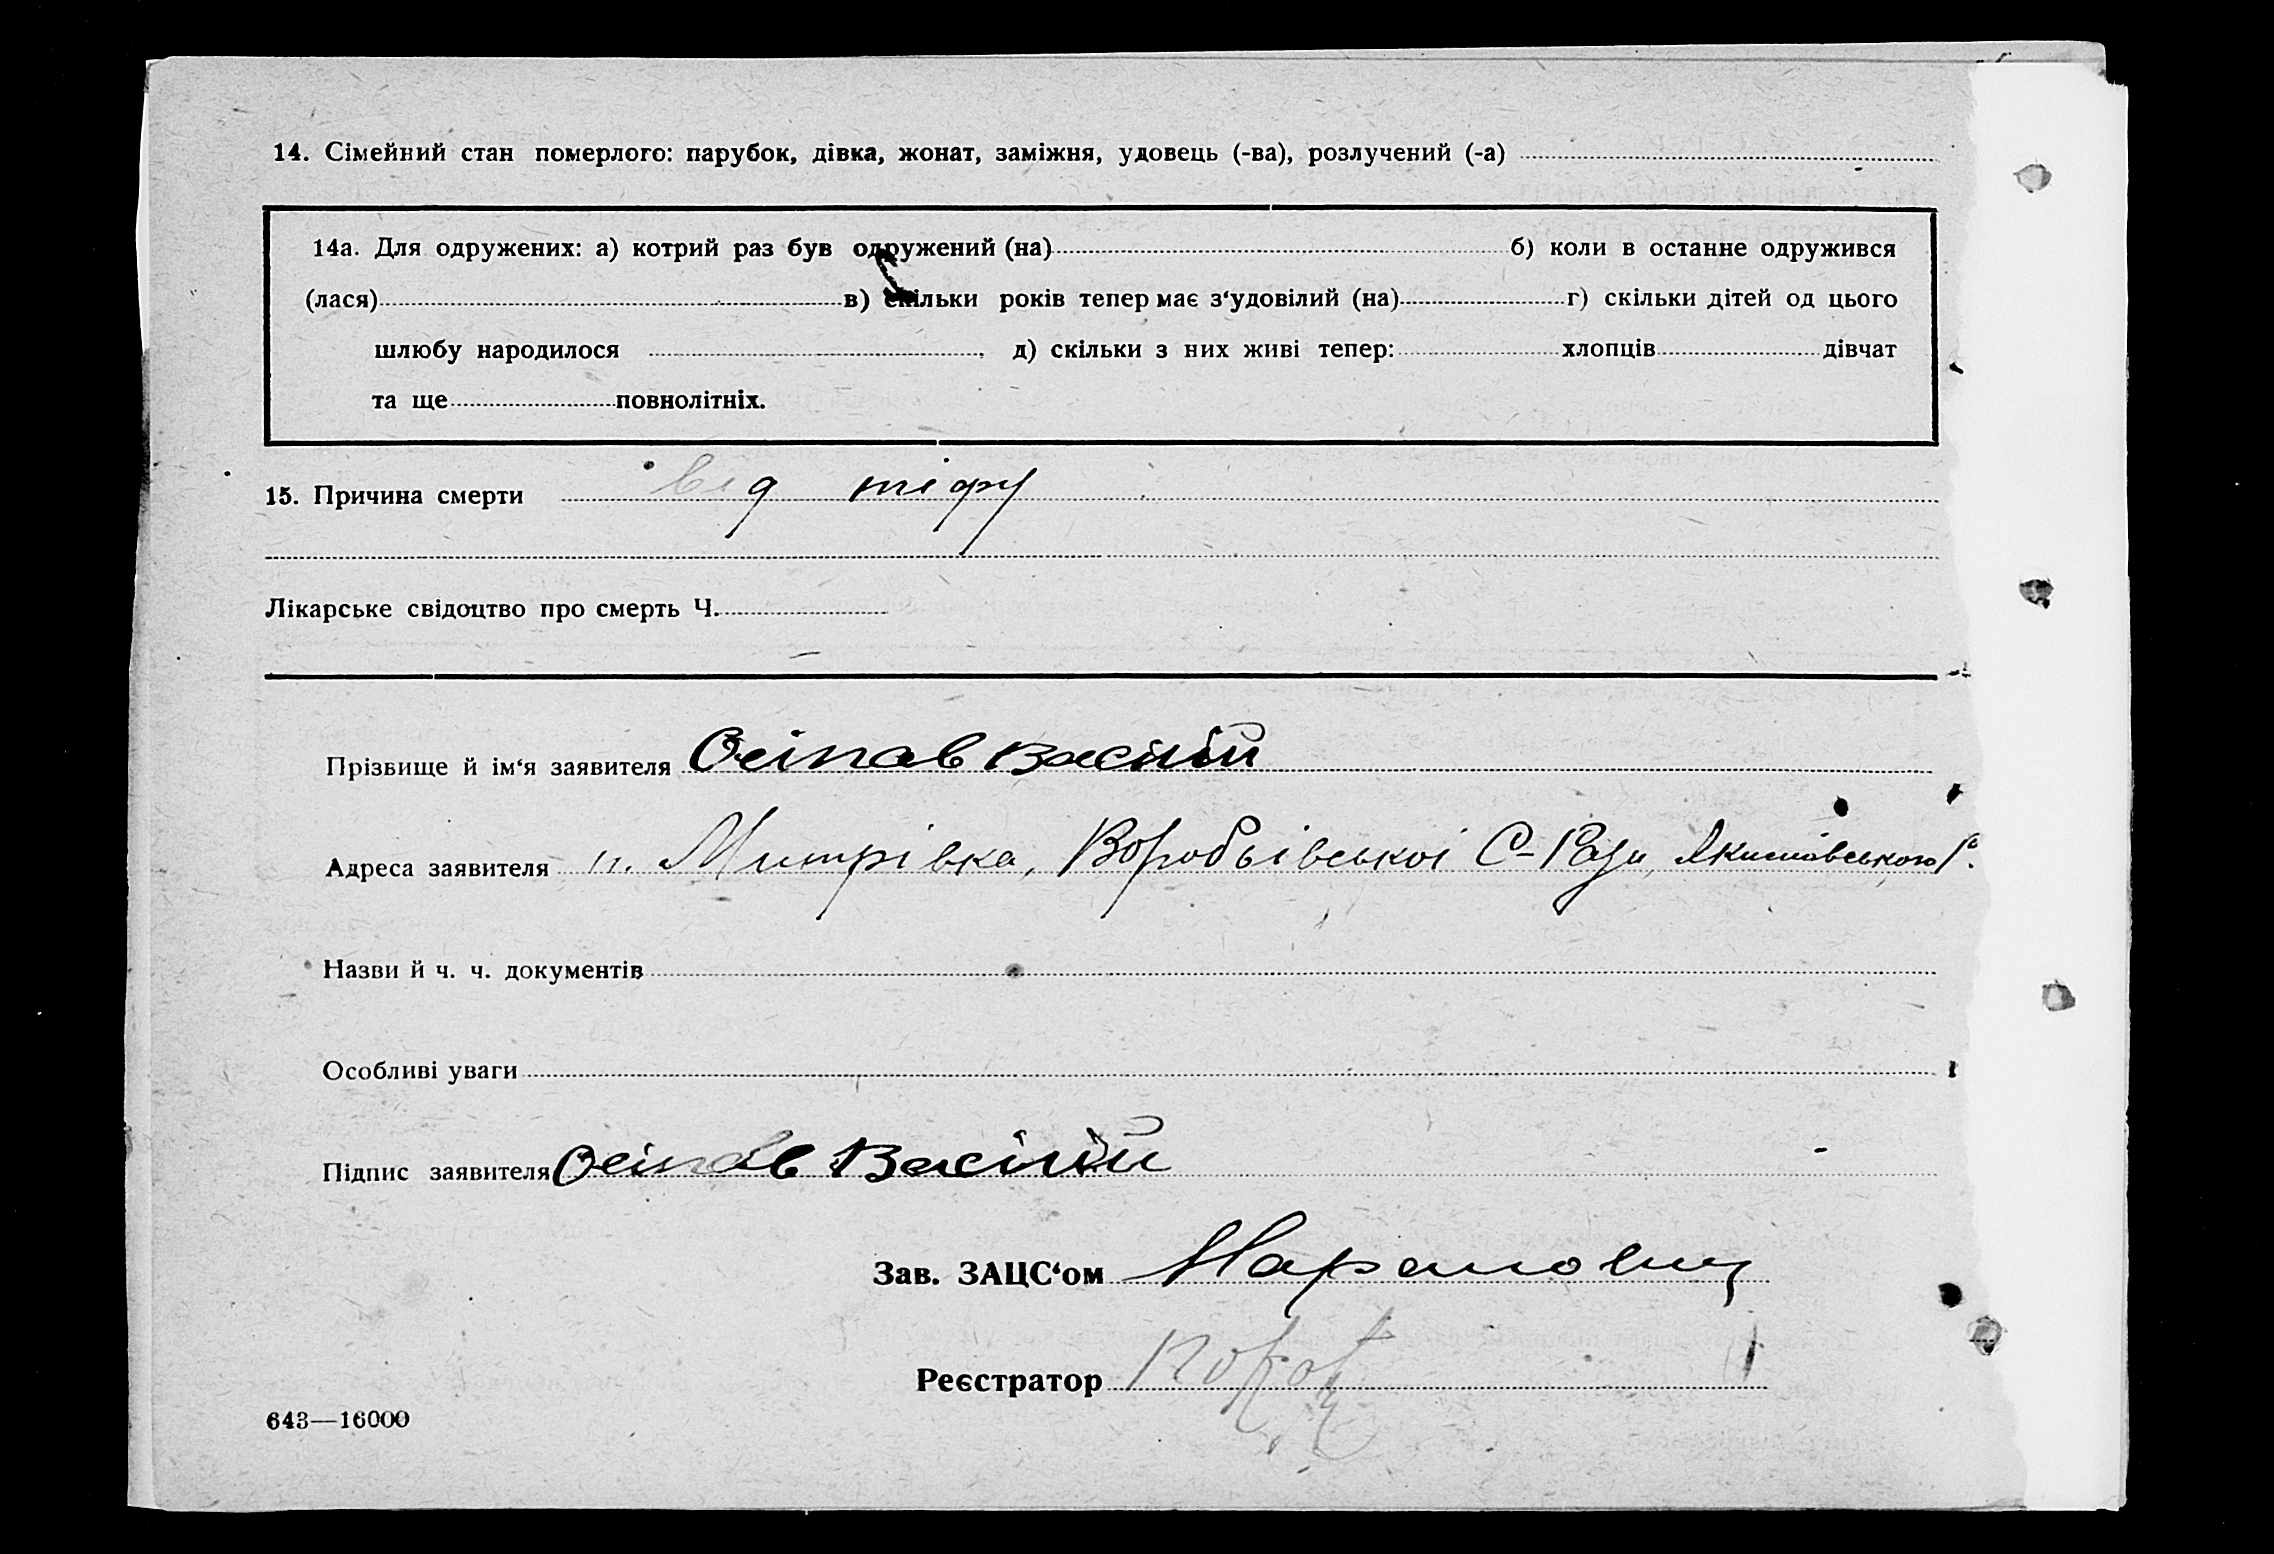 14. Сімейний стан померлого: парубок, дівка, жонат, заміжня, удовець (-ва), розлучений (-а)
14а. Для одружених: а) котрий раз був одружений (на) б) коли в останне одружився
(лася) в) скільки років тепер має з‘удовілий (на) г) скільки дітей од цього
шлюбу народилося д) скільки з них живі тепер: хлопців дівчат
та ще повнолітніх.
15. Причина смерти від тіфу
Лікарське свідоцтво про смерть Ч.
Прізвище й ім‘я заявителя Осіпав Васілій
Адреса заявителя п. Митрівка, Воробьівськоі С-Ради, Якимівського Р.
Назви й ч. ч. документів
Особливі уваги
Підпис заявителя Осіпав Васілій
Зав. ЗАЦС‘ом
Реєстратор
643—16000